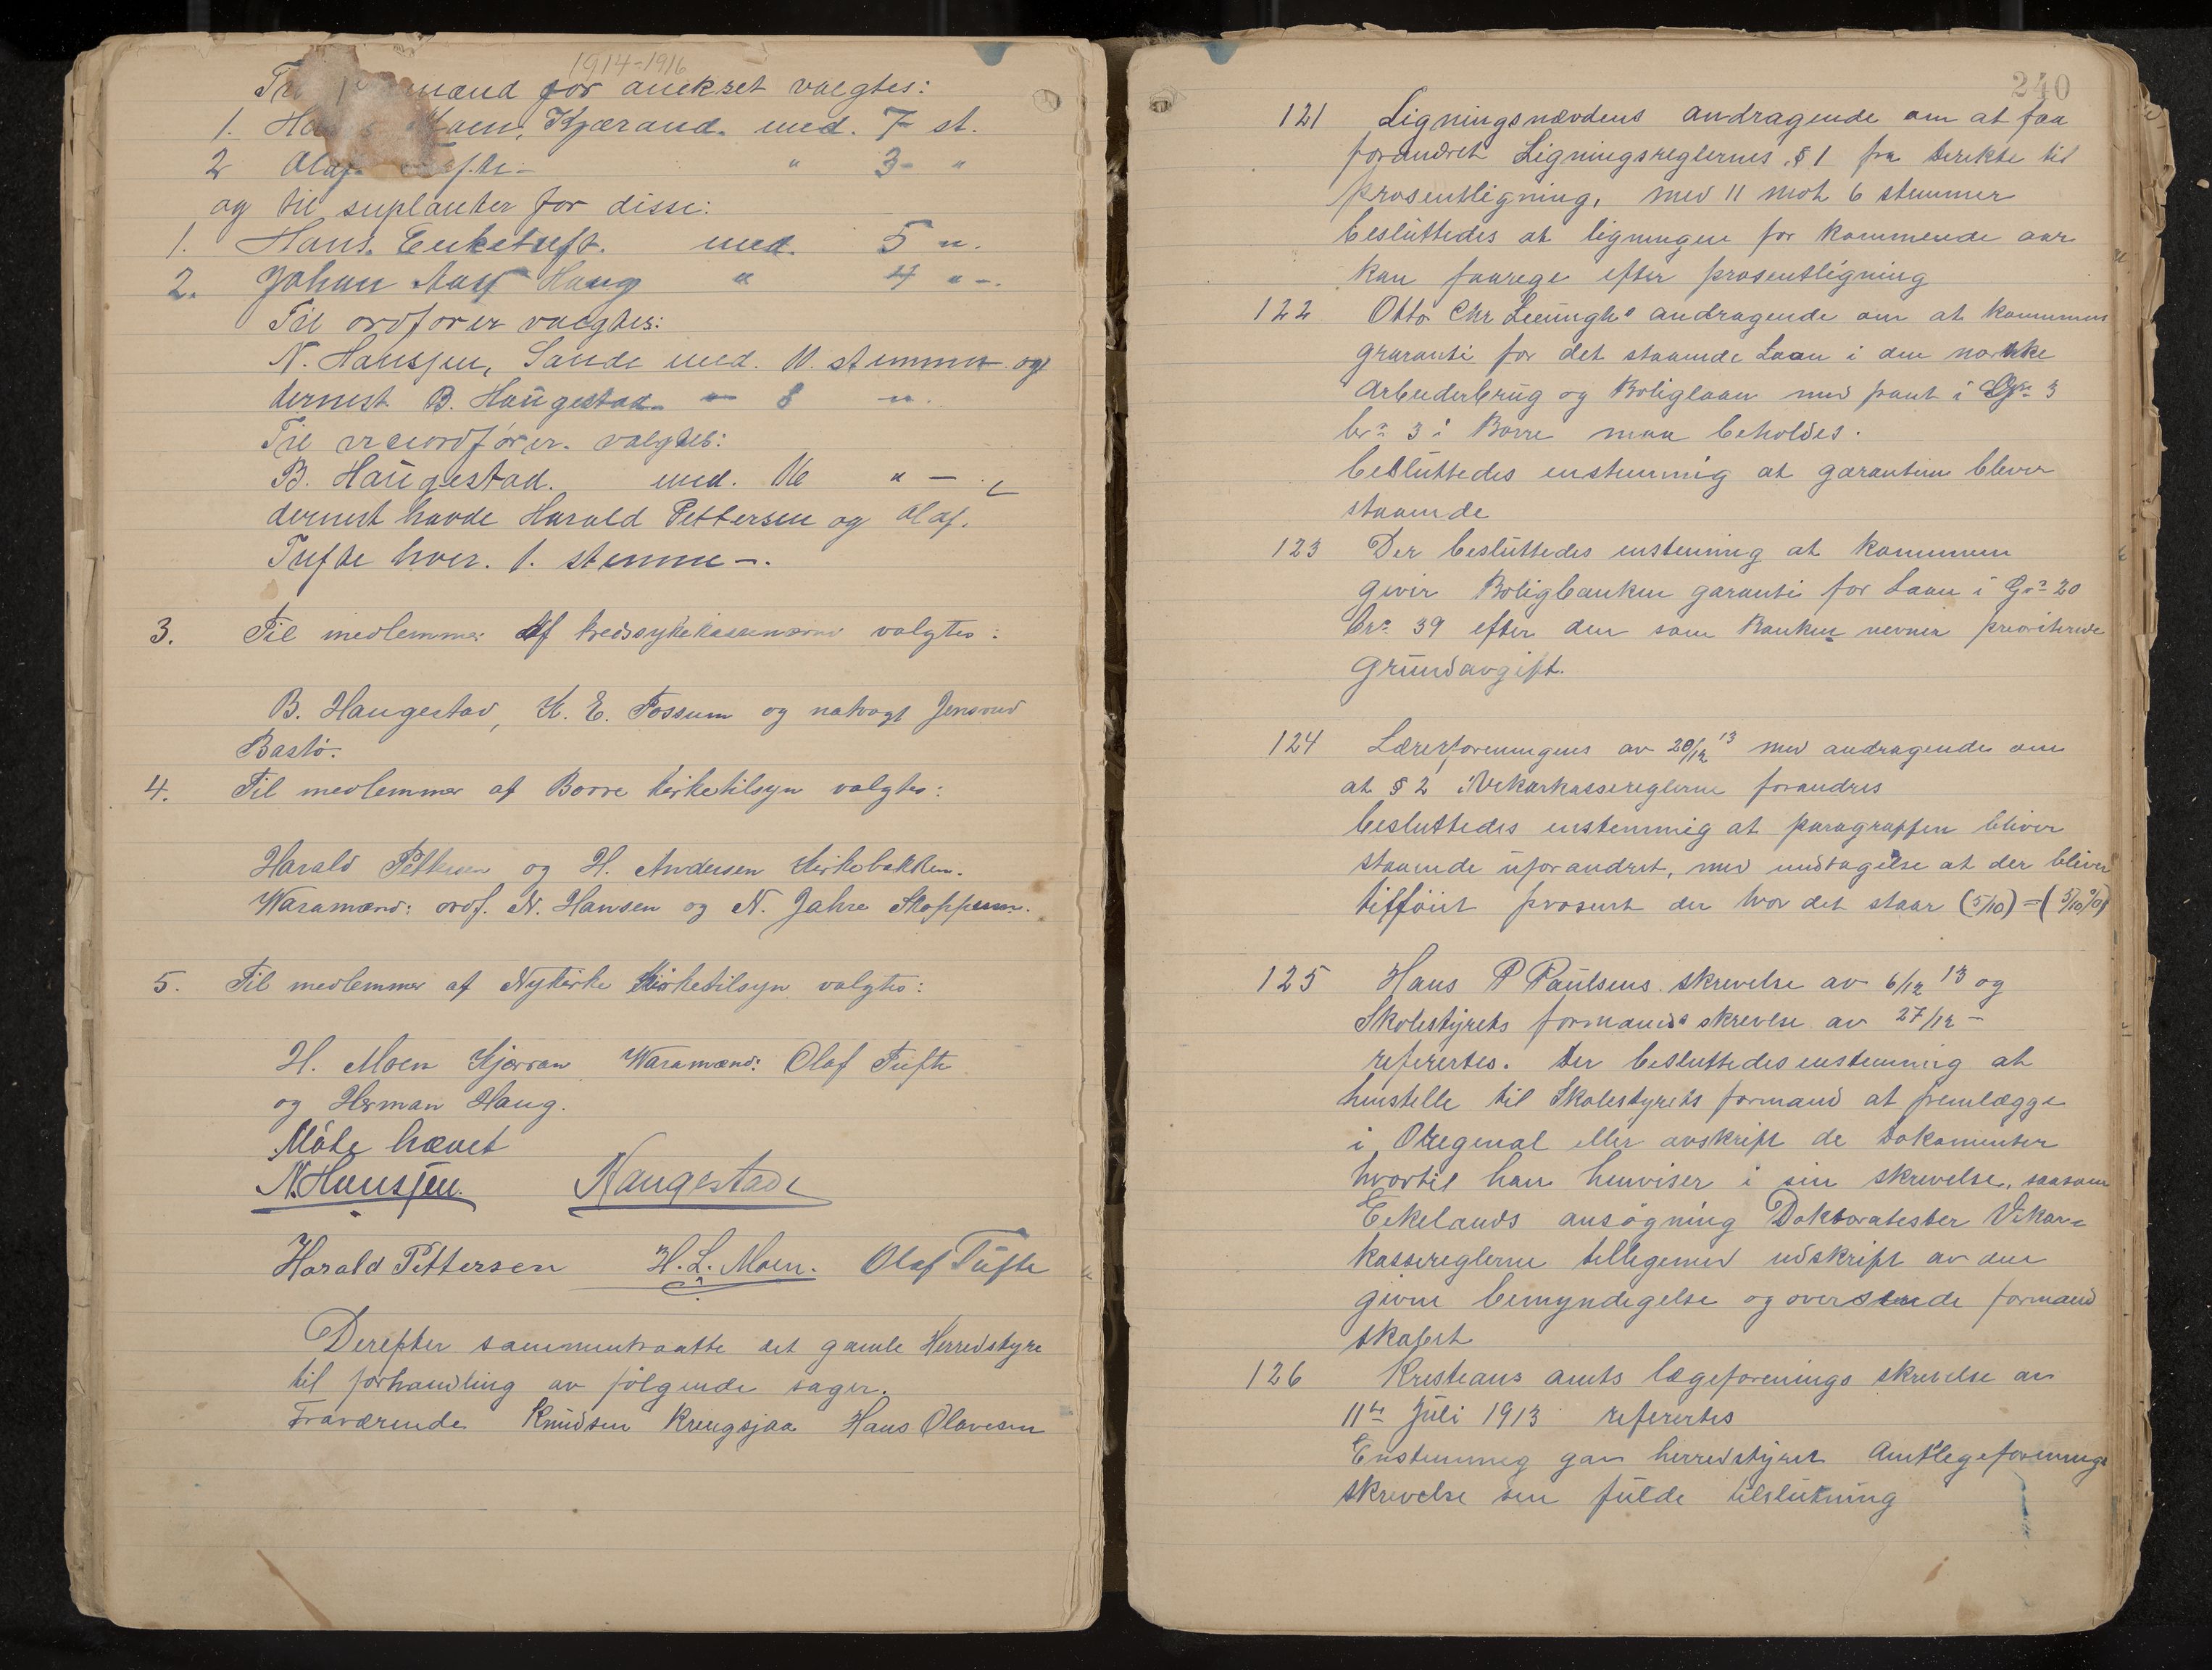 1914-1916
mænd for anekset valgtes:
1. Moen, Kjærand. med. 7 st.
2 Olaf " 3 - "
og til suplanter for disse:
1. Hans. Enketuft. med. 5 "
2. Johan Haug " 4 " -
Til ordfører valgtes:
N. Hansjen, Sande med. 11. stemmer og
dernest B. Haugestad - 8 "
Til viceordfører. valgtes:
B. Haugestad. med. 16 " -
dernest havde Harald Pettersen og Olaf.
Tufte hver. 1. stemme -.
3. Til medlemmer af kredssykekassenævnd valgtes:
B. Haugestad, K. E. Fossum og
Bastö.
4. Til medlemmer af Borre kirketilsyn valgtes:
Harald Pettersen og H. Andersen Kirkebakken.
Waramænd: ordf. N. Hansen og N. Jahre Skoppum.
5. Til medlemmer af Nykirke Kirketilsyn valgtes:
H. Moen Kjærran Waramænd: Olaf Tufte
og Herman Haug.
Möte hævet
N. Hansjen. Haugestad
Harald Pettersen H. L. Moen. Olaf Tufte
Derefter sammentraatte det gamle Herredstyre
til forhandling av fölgende sager.
Fraværende Knudsen Krengsjaa Hans Olavesen
240
121 Ligningsnævdens andragende om at faa
forandret Ligningsreglernes § 1 fra direkte til
prosentligning, med 11 mot 6 stemmer
besluttedes at ligningen for kommende aar
kan foorege efter prosentligning
122 Otto Chr andragende om at kommunens
graranti for det staaende Laan i den norske
Arbeiderbrug og Boliglaan med pant i Gr 3
br 3 i Borre maa beholdes.
besluttedes enstemmig at garantien blever
staaende
123 Der besluttedes enstemmig at kommunen
giver Boligbanken garanti for Laan i Gr 20
br 39 efter den som Banken nevner prioriterede
Grundavgift.
124 Lærerforeningens av 20/12 13 med andragende om
at § 2 i Vekarkassereglerne forandres
besluttedes enstemmig at paragraffen bliver
staaende uforandret, med undtagelse at der bliver
tifföiet prosent der hvor det staar (5/10) = (5/10 %)
125 Hans P Paulsens skrevelse av 6/12 13 og
Skolestyrets formands skrevelse av 27/12 -
refererdes. Der besluttedes enstemmig at
henstelle til Skolestyrets formand at fremlægge
i Oregenal eller avskrift de Dokumenter
hvortil han henviser i sin skrevelse, saasom
Eekelands ansögning Doktoratester Vekar-
kassereglerne tellegemed udskrift av den
givne bemyndegelse og formand
skabet
126 Kresteans amts lægeforenings skrevelse av
11te Juli 1913 referertes
Enstemmeg gav herredstyret Amtlegeforenings
skrevelse sin fulde tilslutning